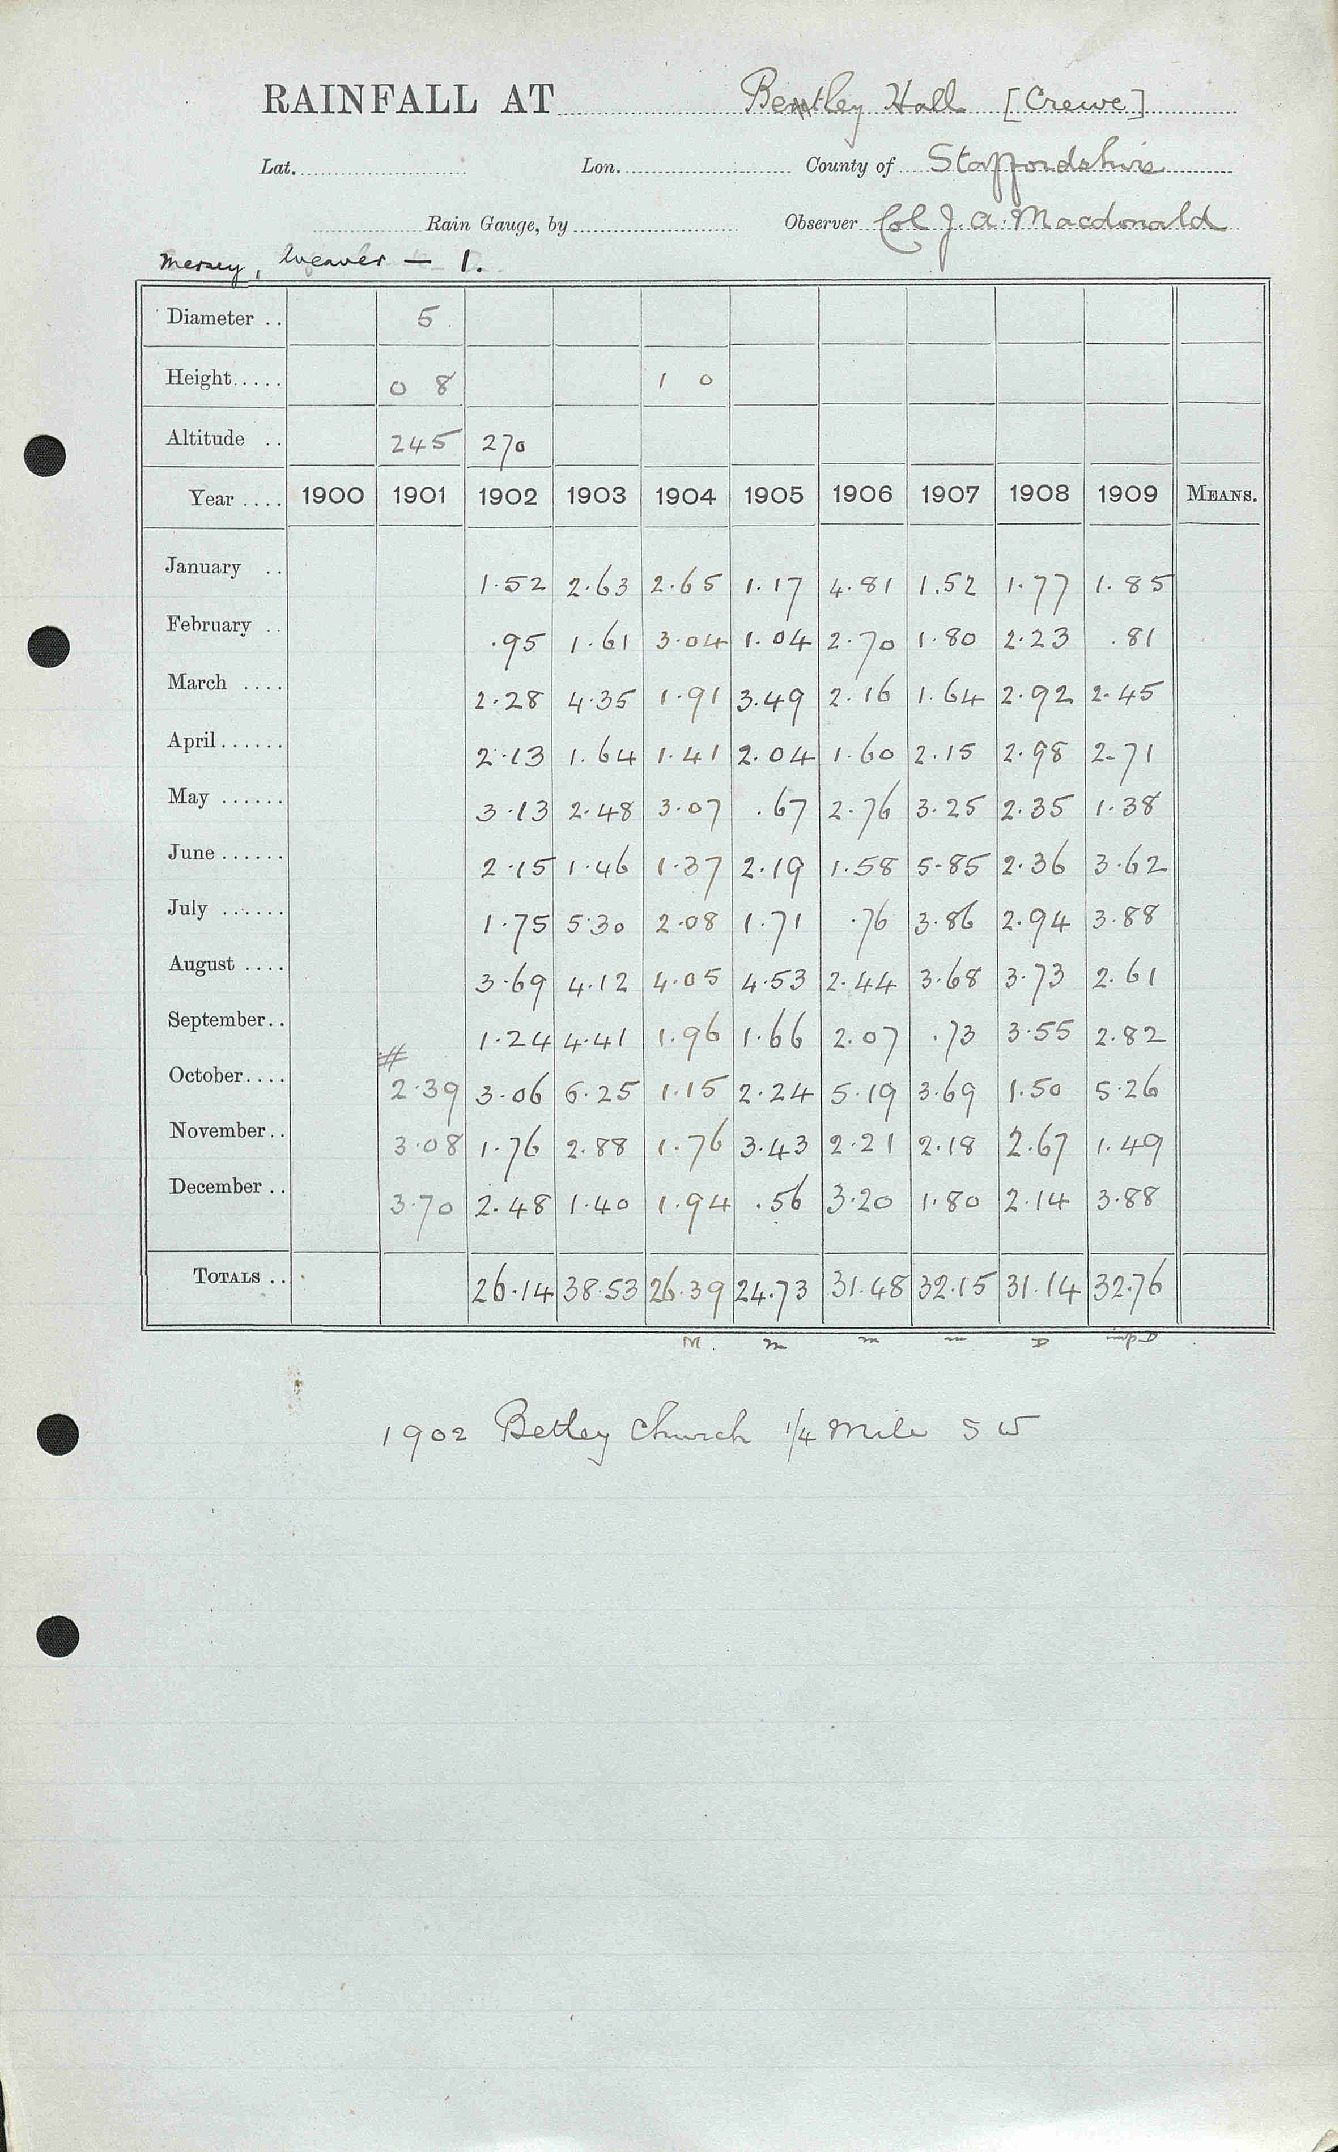 RAINFALL AT Betley Hall [Crewe]
Lat. Lon. County of Staffordshire
Rain Gauge, by Observer Col J. A. Macdonald
Mersey, Weaver — 1.
Diameter .. 5
Height..... 0 8 1 0
Altitude .. 245 270
Year .... 1900 1901 1902 1903 1904 1905 1906 1907 1908 1909 MEANS.
January .. 1.52 2.63 2.65 1.17 4.81 1.52 1.77 1.85
February .. .95 1.61 3.04 1.04 2.70 1.80 2.23 .81
March .... 2.28 4.35 1.91 3.49 2.16 1.64 2.92 2.45
April...... 2.13 1.64 1.41 2.04 1.60 2.15 2.98 2.71
May ...... 3.13 2.48 3.07 .67 2.76 3.25 2.35 1.38
June ...... 2.15 1.46 1.37 2.19 1.58 5.85 2.36 3.62
July ...... 1.75 5.30 2.08 1.71 .76 3.86 2.94 3.88
August .... 3.69 4.12 4.05 4.53 2.44 3.68 3.73 2.61
September.. 1.24 4.41 1.96 1.66 2.07 .73 3.55 2.82
#
October.... 2.39 3.06 6.25 1.15 2.24 5.19 3.69 1.50 5.26
November.. 3.08 1.76 2.88 1.76 3.43 2.21 2.18 2.67 1.49
December .. 3.70 2.48 1.40 1.94 .56 3.20 1.80 2.14 3.88
TOTALS .. 26.14 38.53 26.39 24.73 31.48 32.15 31.14 32.76
M. m m m D
1902 Betley Church 1/4 Mile S W